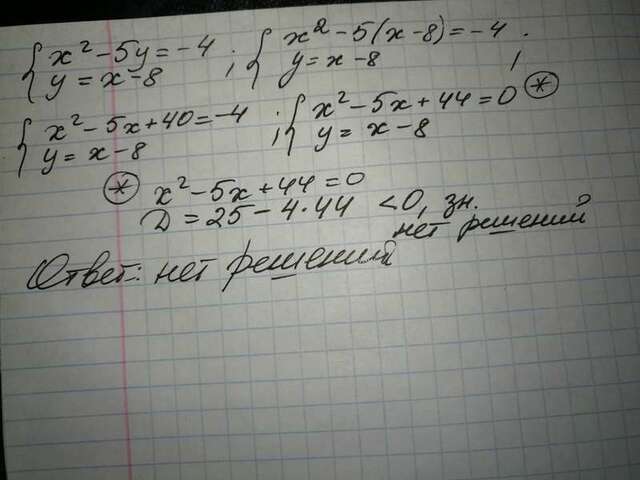 { x² - 5y = -4 ; { x² - 5(x - 8) = -4 ;
y = x - 8 y = x - 8
{ x² - 5x + 40 = -4 ; { x² - 5x + 44 = 0 (*)
y = x - 8 y = x - 8
(*) x² - 5x + 44 = 0
D = 25 - 4·44 < 0, зн.
нет решений
Ответ: нет решений